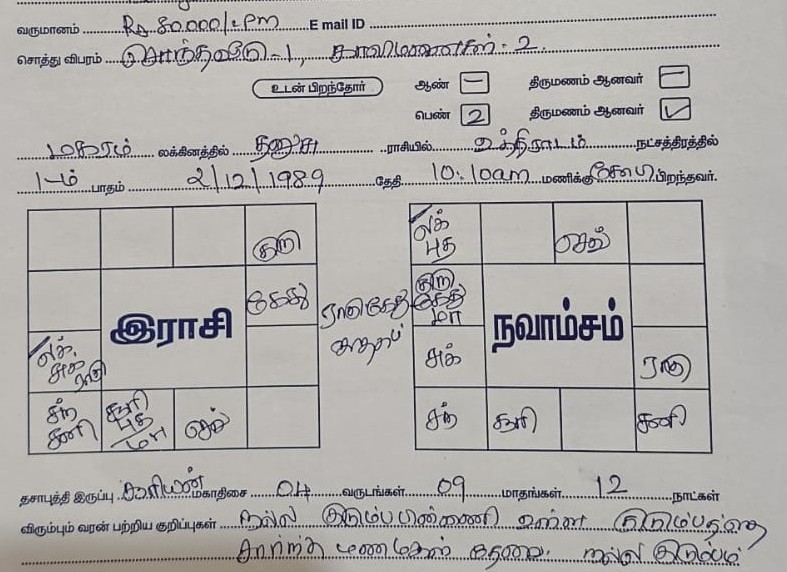 வருமானம் Rs 80.000/-PM E mail ID
சொத்து விபரம் சொந்தவீடு-1, காலிமனைகள்-2
உடன் பிறந்தோர் ஆண் - திருமணம் ஆனவர் -
பெண் 2 திருமணம் ஆனவர் ✓
மகரம் லக்கினத்தில் தனுசு ராசியில் உத்திராடம் நட்சத்திரத்தில்
1-ம் பாதம் 2/12/1989 தேதி 10:10am மணிக்கு பிறந்தவர்.
குரு
கேது
இராசி
லக்
சுக்
ராகு
சந்
சனி
சூரி
புத
மா
செவ்
ராகு கேது
லக்
புத
செவ்
குரு
கேது
மா
நவாம்சம்
சுக்
ராகு
சந்
சூரி
சனி
தசாபுத்தி இருப்பு சூரியன் மகாதிசை 04 வருடங்கள் 09 மாதங்கள் 12 நாட்கள்
விரும்பும் வரன் பற்றிய குறிப்புகள் நல்ல குடும்ப பிண்ணனி உள்ள குடும்பத்தை
சார்ந்த மணமகள் தேவை. நல்ல குடும்பம்